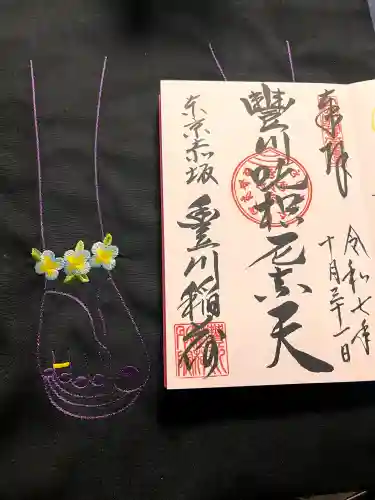 奉拝
令和七年
十月三十一日
豐川吒枳尼真天
東京赤坂
豊川稲荷